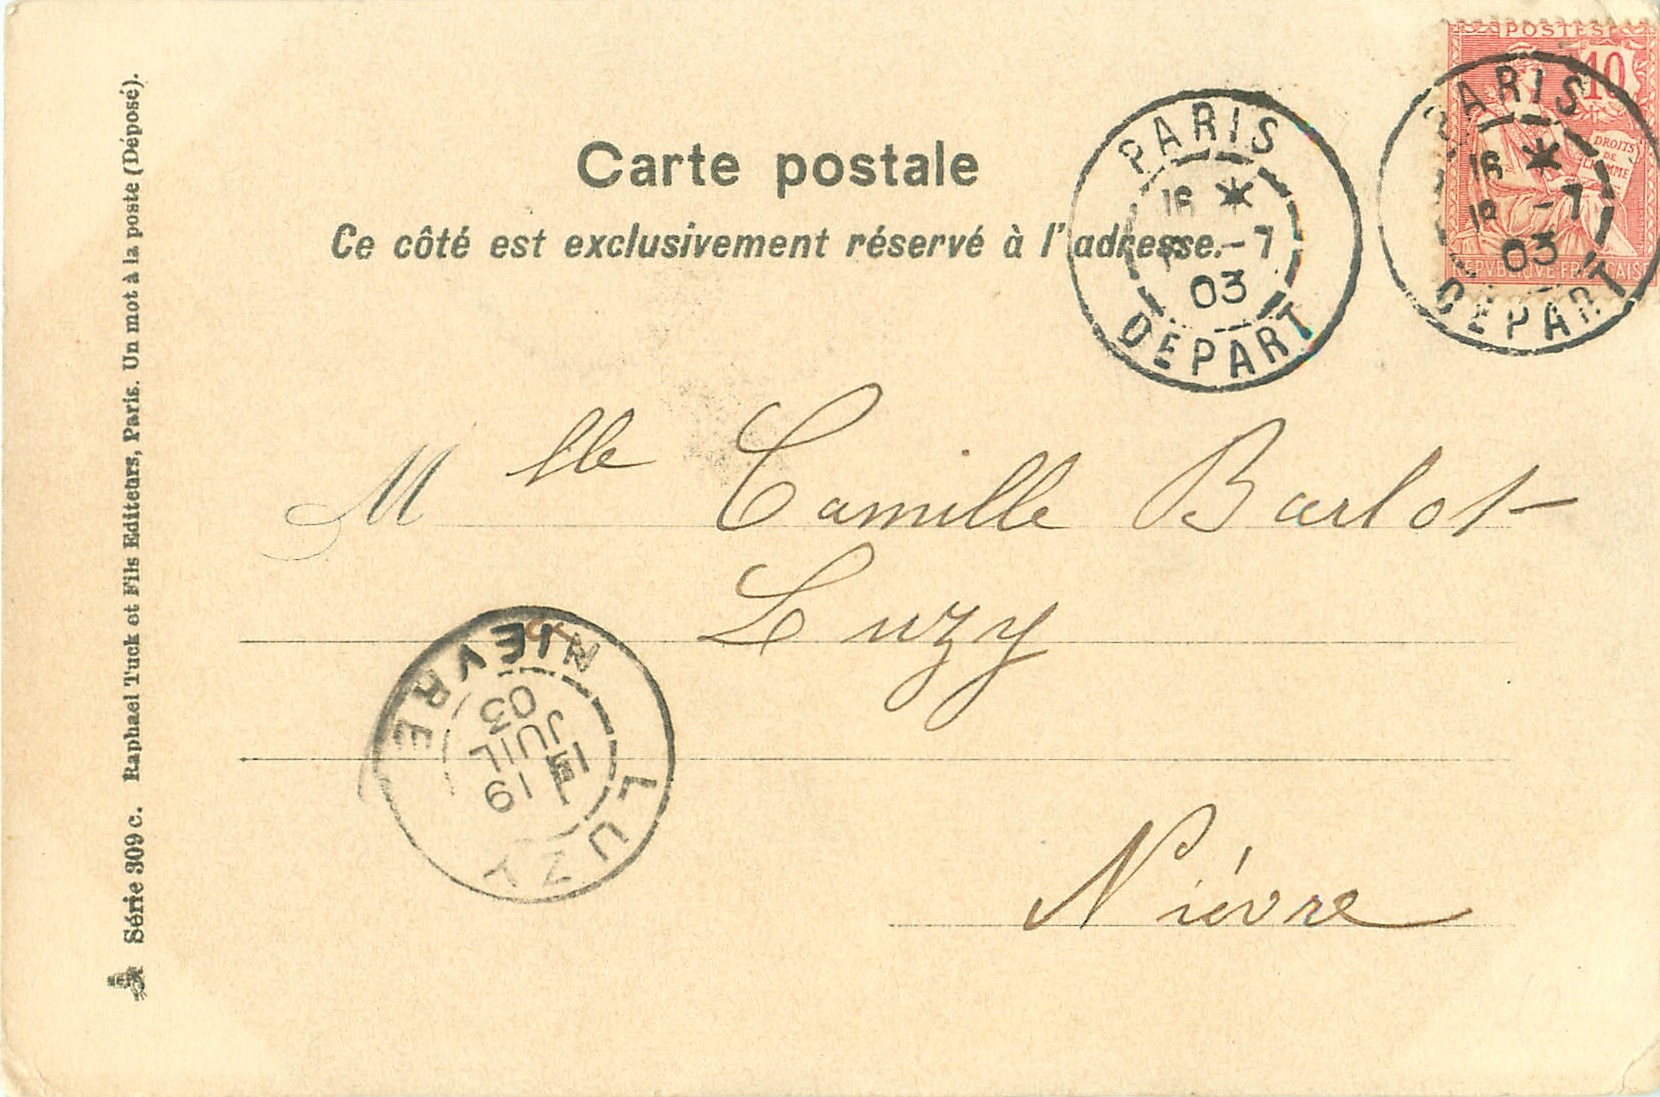 Carte postale
Ce côté est exclusivement réservé à l'adresse.
PARIS
18 *
-7
03
DEPART
POSTES
10
DROITS
DE
L'HOMME
REPUBLIQUE FRANÇAISE
PARIS
18 *
18 -7
03
DEPART
Mlle Camille Barlot
Luzy
Nièvre
LUZY
19
JUIL
03
NIEVRE
Série 309 c. Raphael Tuck et Fils Editeurs, Paris. Un mot à la poste (Déposé).